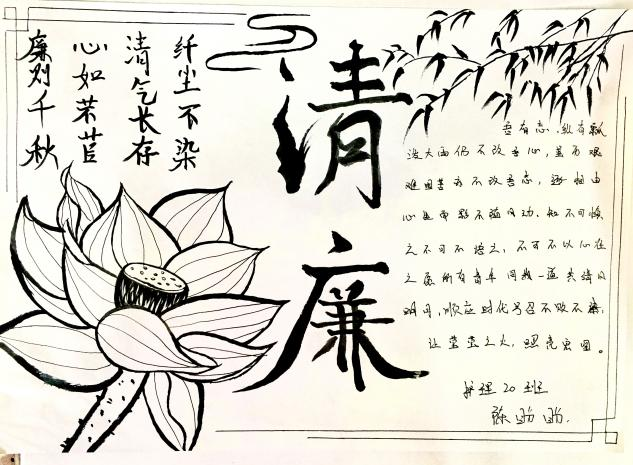 纤尘不染
清气长存
心如芣苢
廉千秋
清廉
吾有志,纵有瓢
泼大雨仍不改吾心,虽有艰
难困苦亦不改吾志,自由
心不随风动,知不可
之不可不之,不可不以心在
之愿所有青年同我一道共清风
明月,顺应时代号召不败不
让莹莹之火,照亮家国。
护理20班